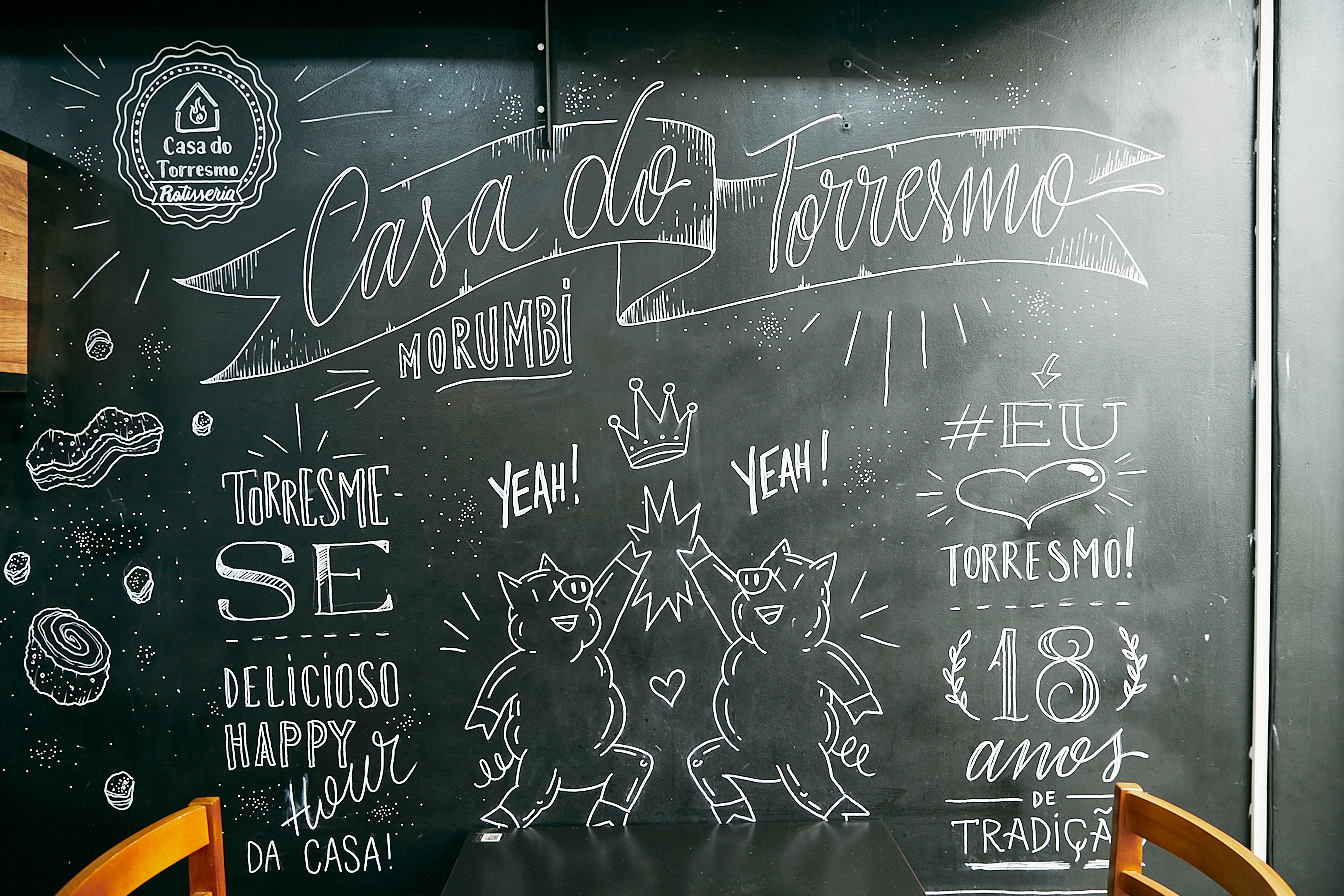 Casa do
Torresmo
Rotisseria
Casa do Torresmo
MORUMBI
YEAH!
YEAH!
TORRESME-
SE
DELICIOSO
HAPPY
Hour
DA CASA!
#EU
TORRESMO!
18
anos
DE
TRADIÇÃ